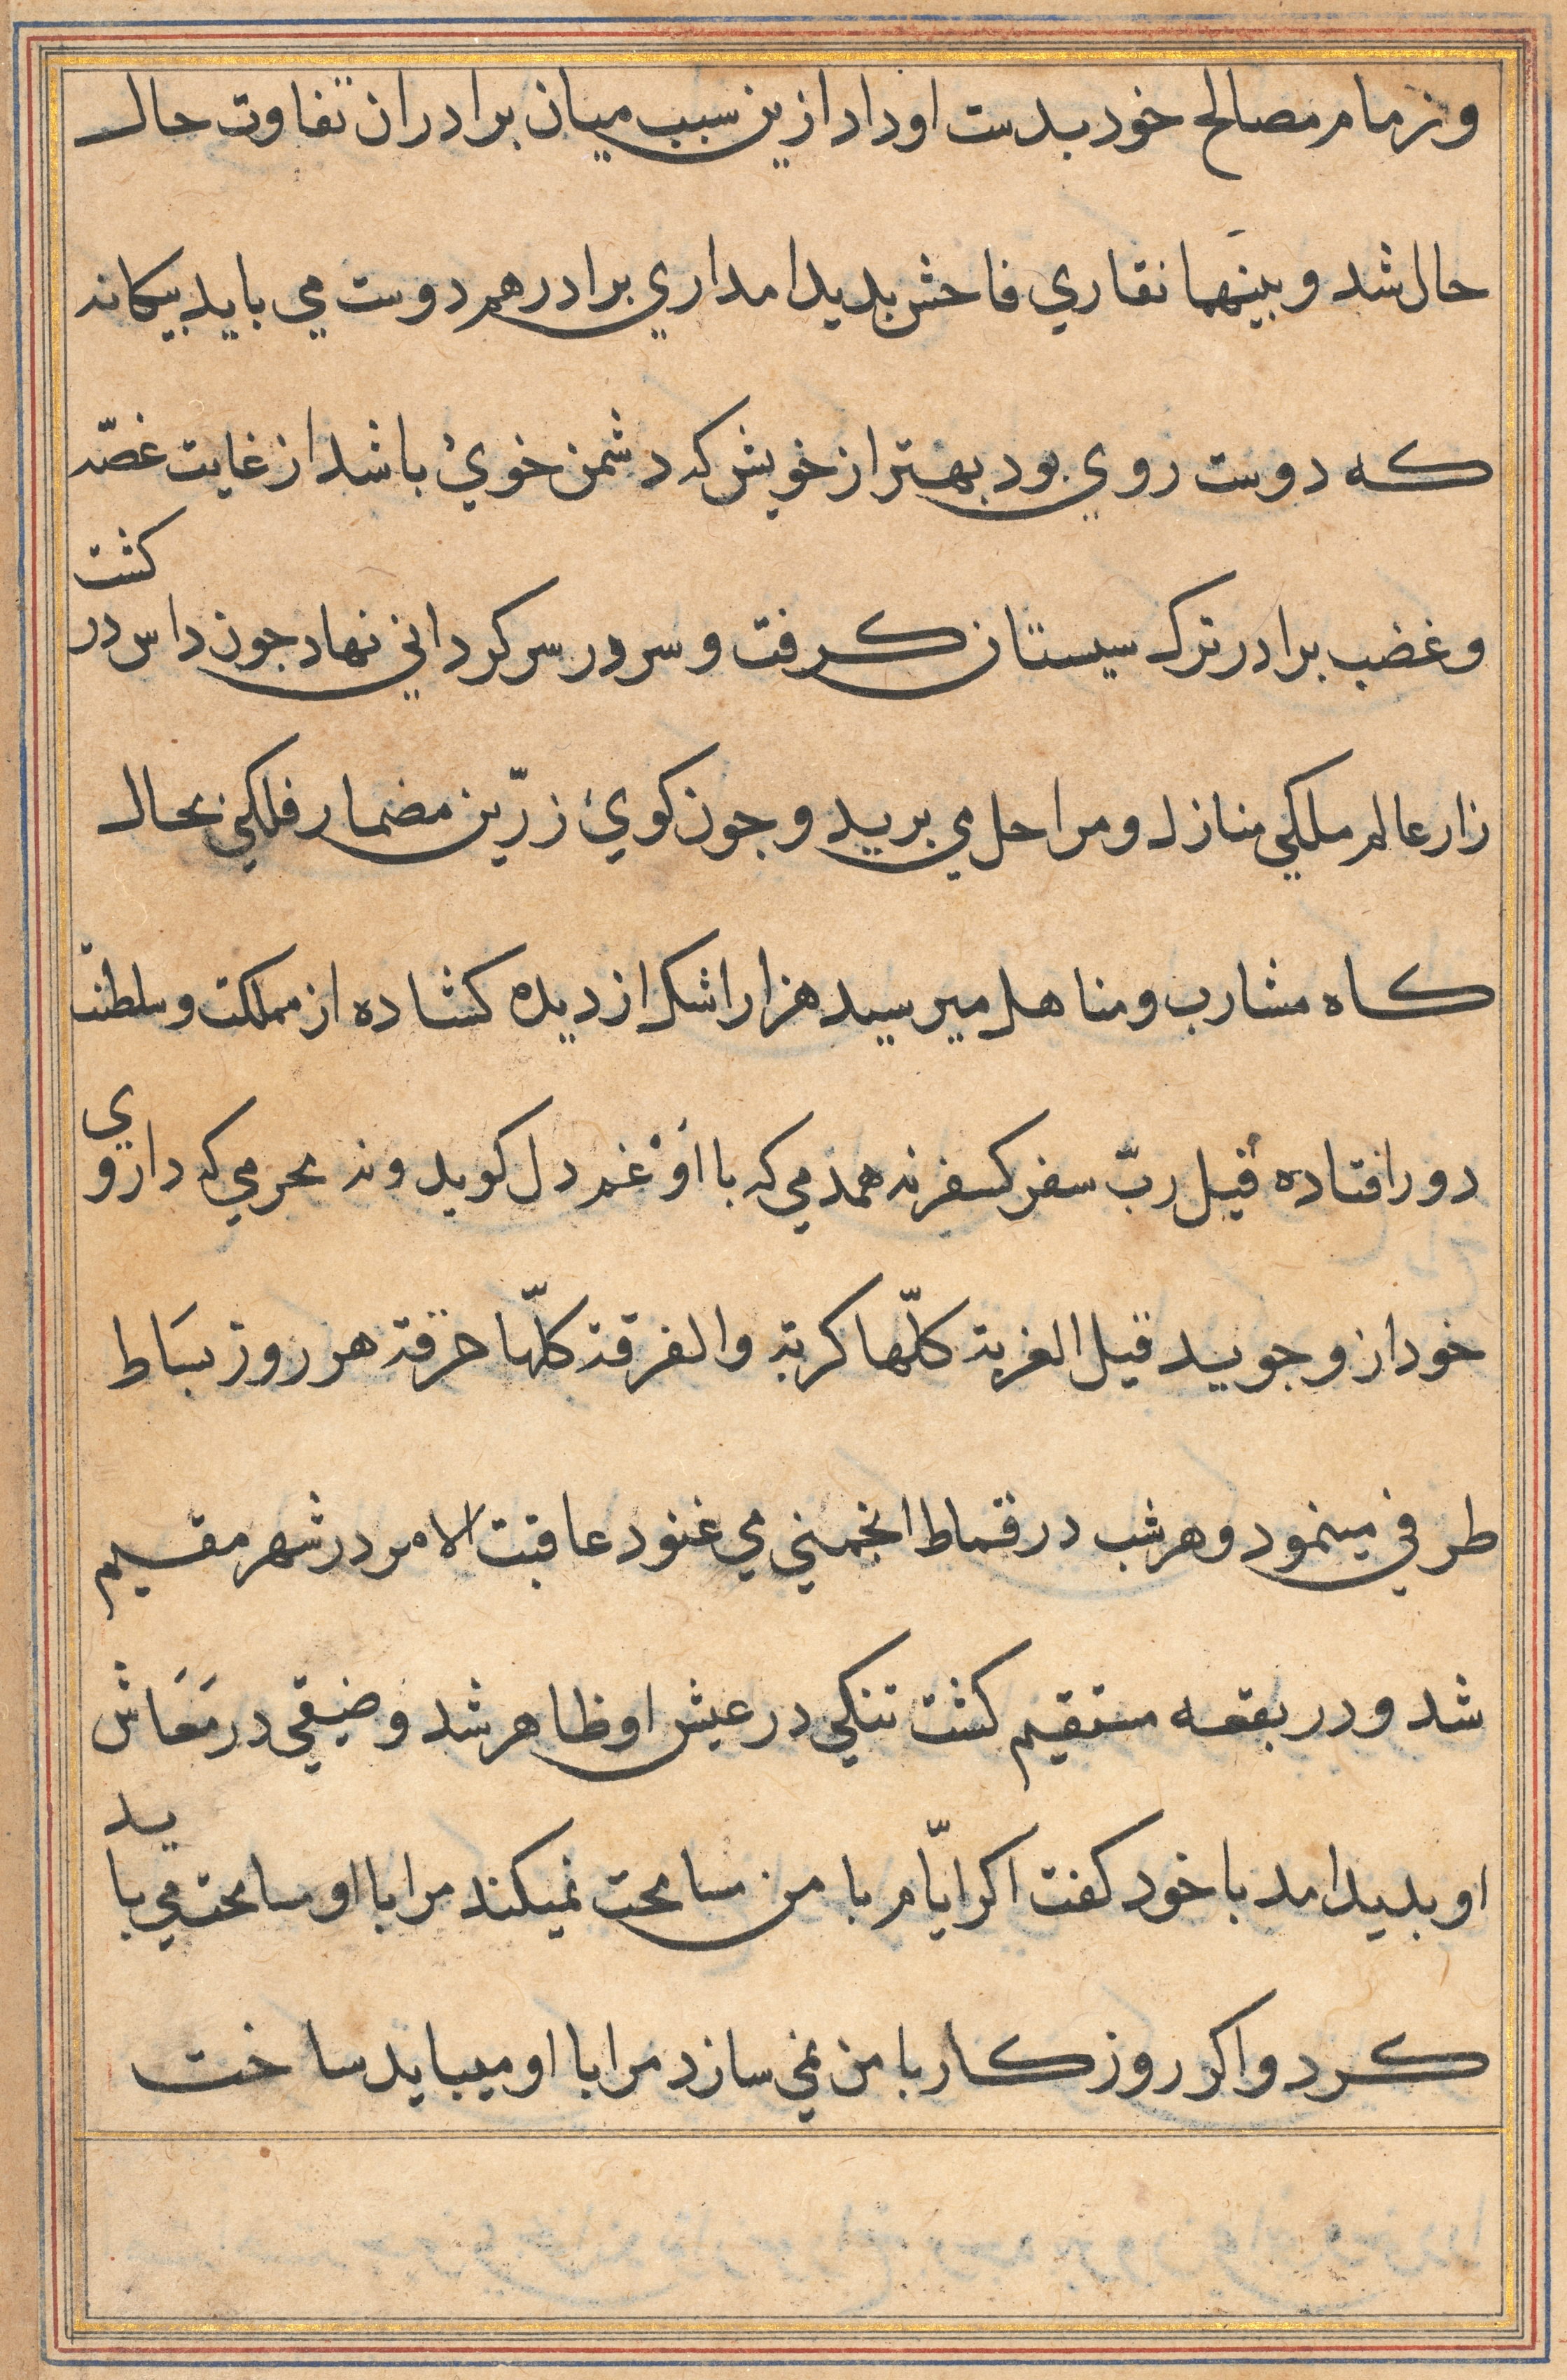 و زمام مصالح خود بدست او داد ازین سبب میان برادران تفاوت حال
حال شد و بینهما نقاری فاحش بدید امد اری برادر هم دوست می باید بیکانه
که دوست روی بود بهتر از خویش که دشمن خویٔ باشد از غایت غصّه
و غضب برادر ترک سیستان کرفت و سر در سرکردانی نهاد جون داس در کشت
زار عالم ملکی منازل و مراحل می برید و جون کویٔ زرّین مضمار فلکی بحال
کاه مشارب و مناهل میرسید هزار اشک از دیده کشاده از مملکت و سلطنت
دور افتاده قیل ربّ سفر کسفر نه همدمی که با اوْ غم دل کوید و نه محرمی که داروی
خود ازو جوید قیل الغربة کلّها کربة والفرقة کلّها حرقة هر روز بسَاط
طرفی مینمود و هر شب در قماط انجمنی می غنود عاقبت الامر در شهر مقیم
شد و در بقعه مستقیم کشت تنکی در عیش او ظاهر شد و ضیقی در مَعَاش
او بدید امد با خود کفت اکر ایّام با من مسامحت نمیکند مرا با او مسامحت می باید
کرد و اکر روزکار با من نمی سازد مرا با او میباید ساخت